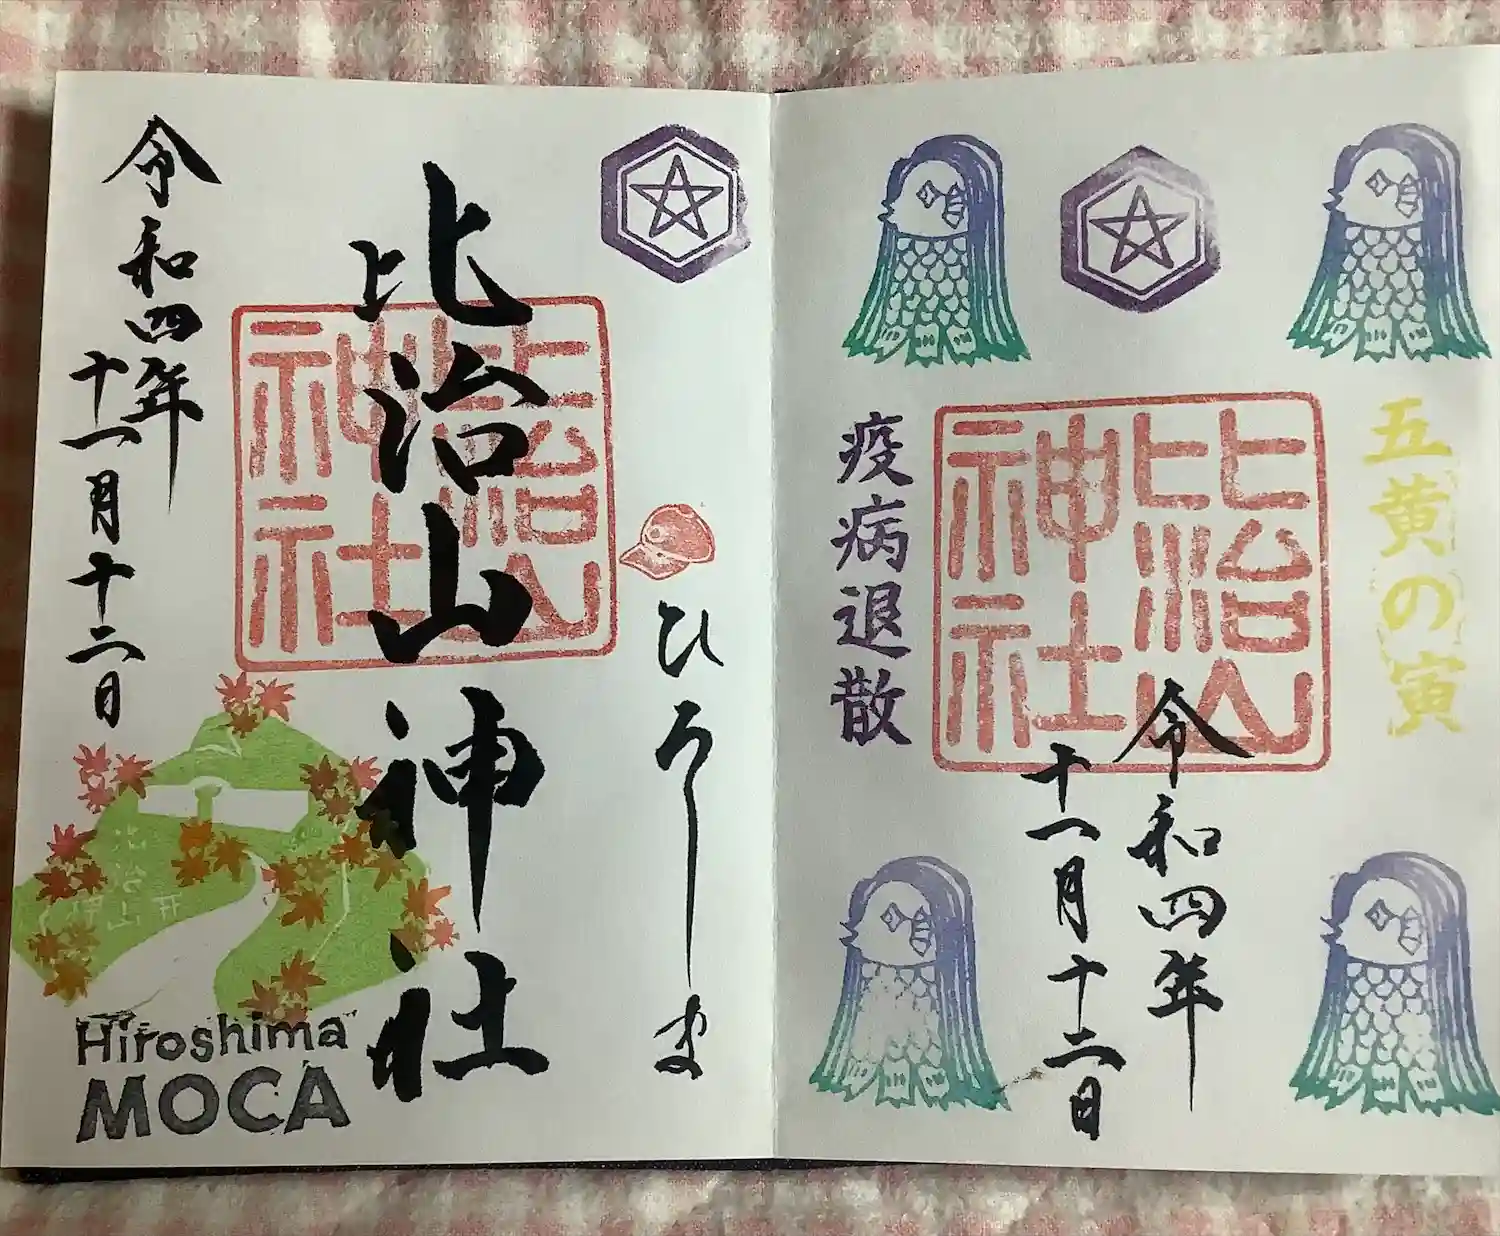 五黄の寅
比治山神社
令和四年
十一月十二日
疫病退散
ひろしま
比治山神社
比治山神社
令和四年
十一月十二日
Hiroshima
MOCA